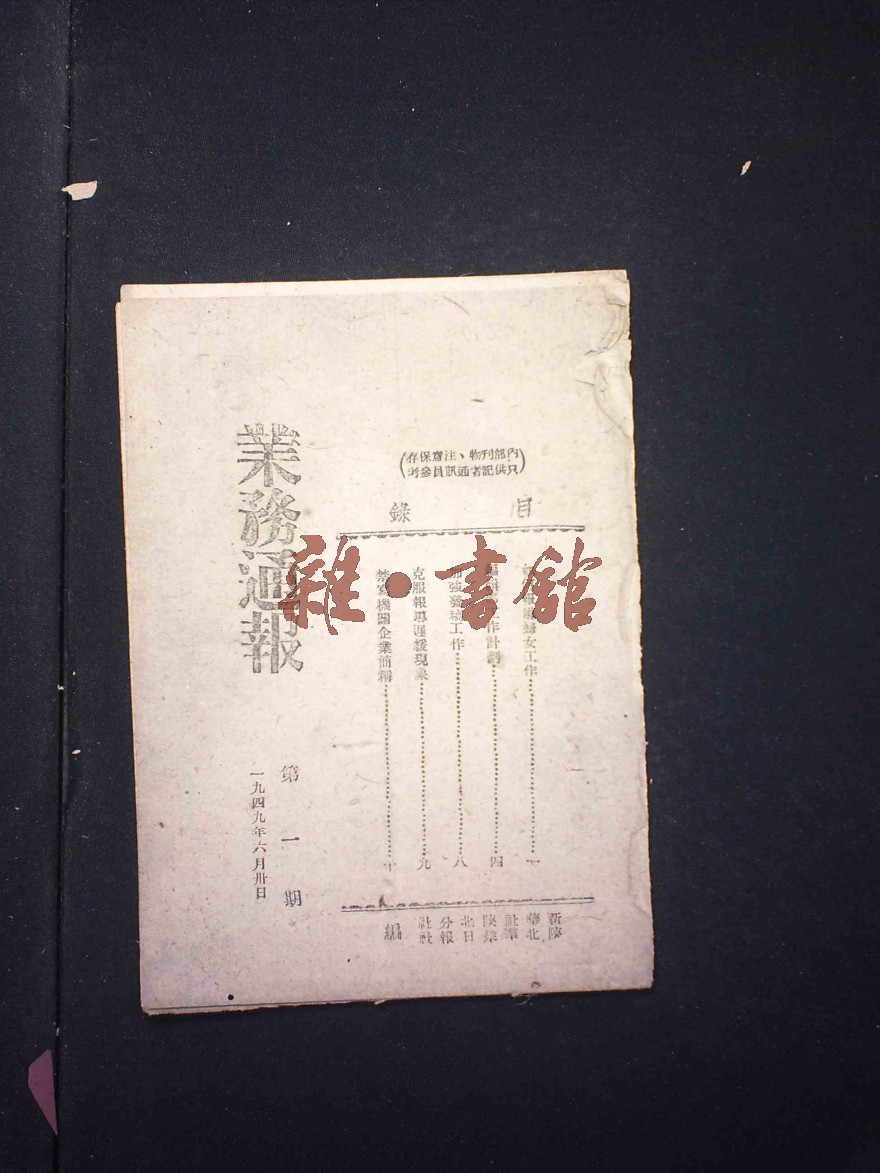 內部刊物、注意保存
只供記者通訊員參考
目錄
婦女工作……一
工作計劃……四
加強發稿工作……八
克服報導遲緩現象……九
禁寫機關企業簡稱……十
新華社陝北分社
陝北羣衆日報社
編
業務通報
第一期
一九四九年六月卅日
雜·書館